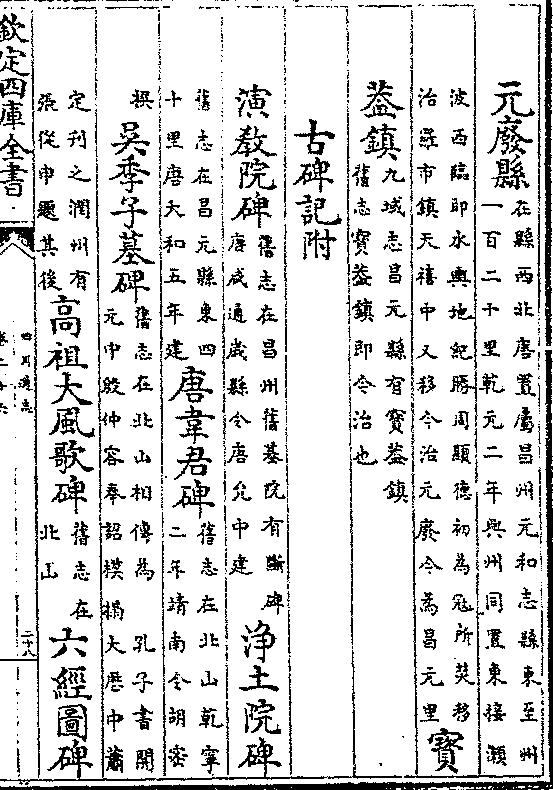 元廢縣在縣西北唐置屬昌州元和志縣東至州一百二十里乾元二年與州同置東接瀨
波西臨即水輿地紀勝周顯德初為冦所焚移治羅市鎮天禧中又移今治元廢今為昌元里寳
葢鎮九域志昌元縣有寳葢鎮舊志寳葢鎮即今治也
古碑記附
演教院碑舊志在昌州舊基院有斷碑唐咸通歲縣令唐允中建淨土院碑
舊志在昌元縣東四十里唐大和五年建唐韋君碑舊志在北山乾寧二年靖南令胡密
撰吳季子墓碑舊志在北山相傳為孔子書開元中殷仲容奉詔模搨大厯中蕭
定刊之潤州有張從申題其後高祖大風歌碑舊志在北山六經圖碑
欽定四庫全書
四川通志
卷二十六
二十八